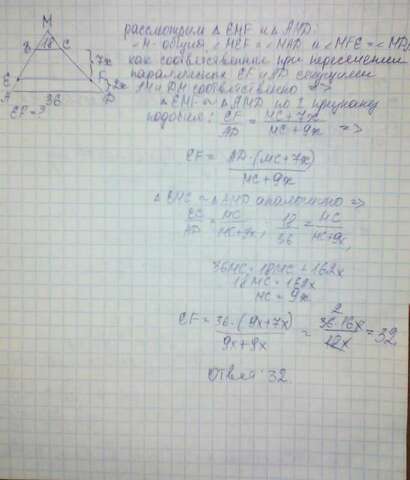 M
рассмотрим △ EMF и △ AMD:
B 18 C
∠M - общий, ∠MEF = ∠MAD и ∠MFE = ∠MDA
7x
как соответственные при пересечении
E F
параллельных EF и AD секущими
2x
AM и DM соответственно =>
A 36 D
△ EMF ~ △ AMD по I признаку
EF = ?
подобия: EF/AD = MC+7x/MC+9x =>
EF = AD·(MC+7x)/MC+9x
△ BMC ~ △ AMD аналогично =>
MC 18/36 = MC/MC+9x,
36MC = 18MC + 162x
18MC = 162x
MC = 9x
EF = 36·(9x+7x)/9x+9x = 36·16x/18x = 32
2
Ответ: 32.